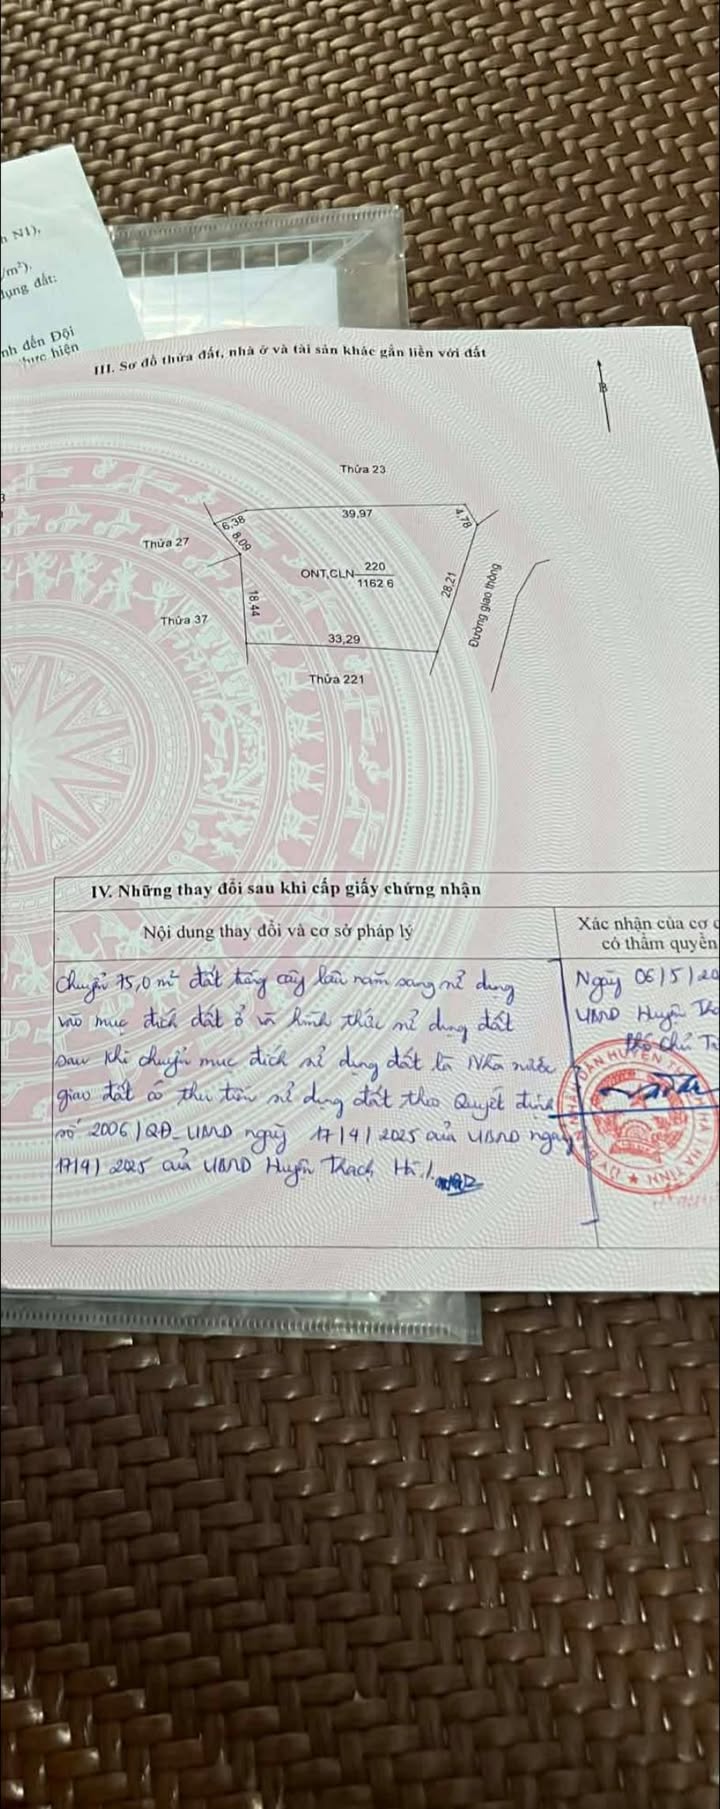 h N1),
/m²).
dụng đất:
nh đến Đội
thực hiện
III. Sơ đồ thửa đất, nhà ở và tài sản khác gắn liền với đất
B
Thửa 23
39,97
4,78
6,38
8,09
Thửa 27
ONT,CLN 220
1162.6
28,21
Đường giao thông
18,44
Thửa 37
33,29
Thửa 221
IV. Những thay đổi sau khi cấp giấy chứng nhận
Nội dung thay đổi và cơ sở pháp lý
Xác nhận của cơ q
có thẩm quyền
Chuyển 75,0 m² đất trồng cây lâu năm sang sử dụng
vào mục đích đất ở và hình thức sử dụng đất
sau khi chuyển mục đích sử dụng đất là Nhà nước
giao đất có thu tiền sử dụng đất theo Quyết định
số 2006/QĐ-UBND ngày 17/4/2025 của UBND ngày
17/4/2025 của UBND Huyện Thạch Hà./.
Ngày 06/5/20
UBND Huyện Thạ
Phó Chủ T
HÀ TĨNH